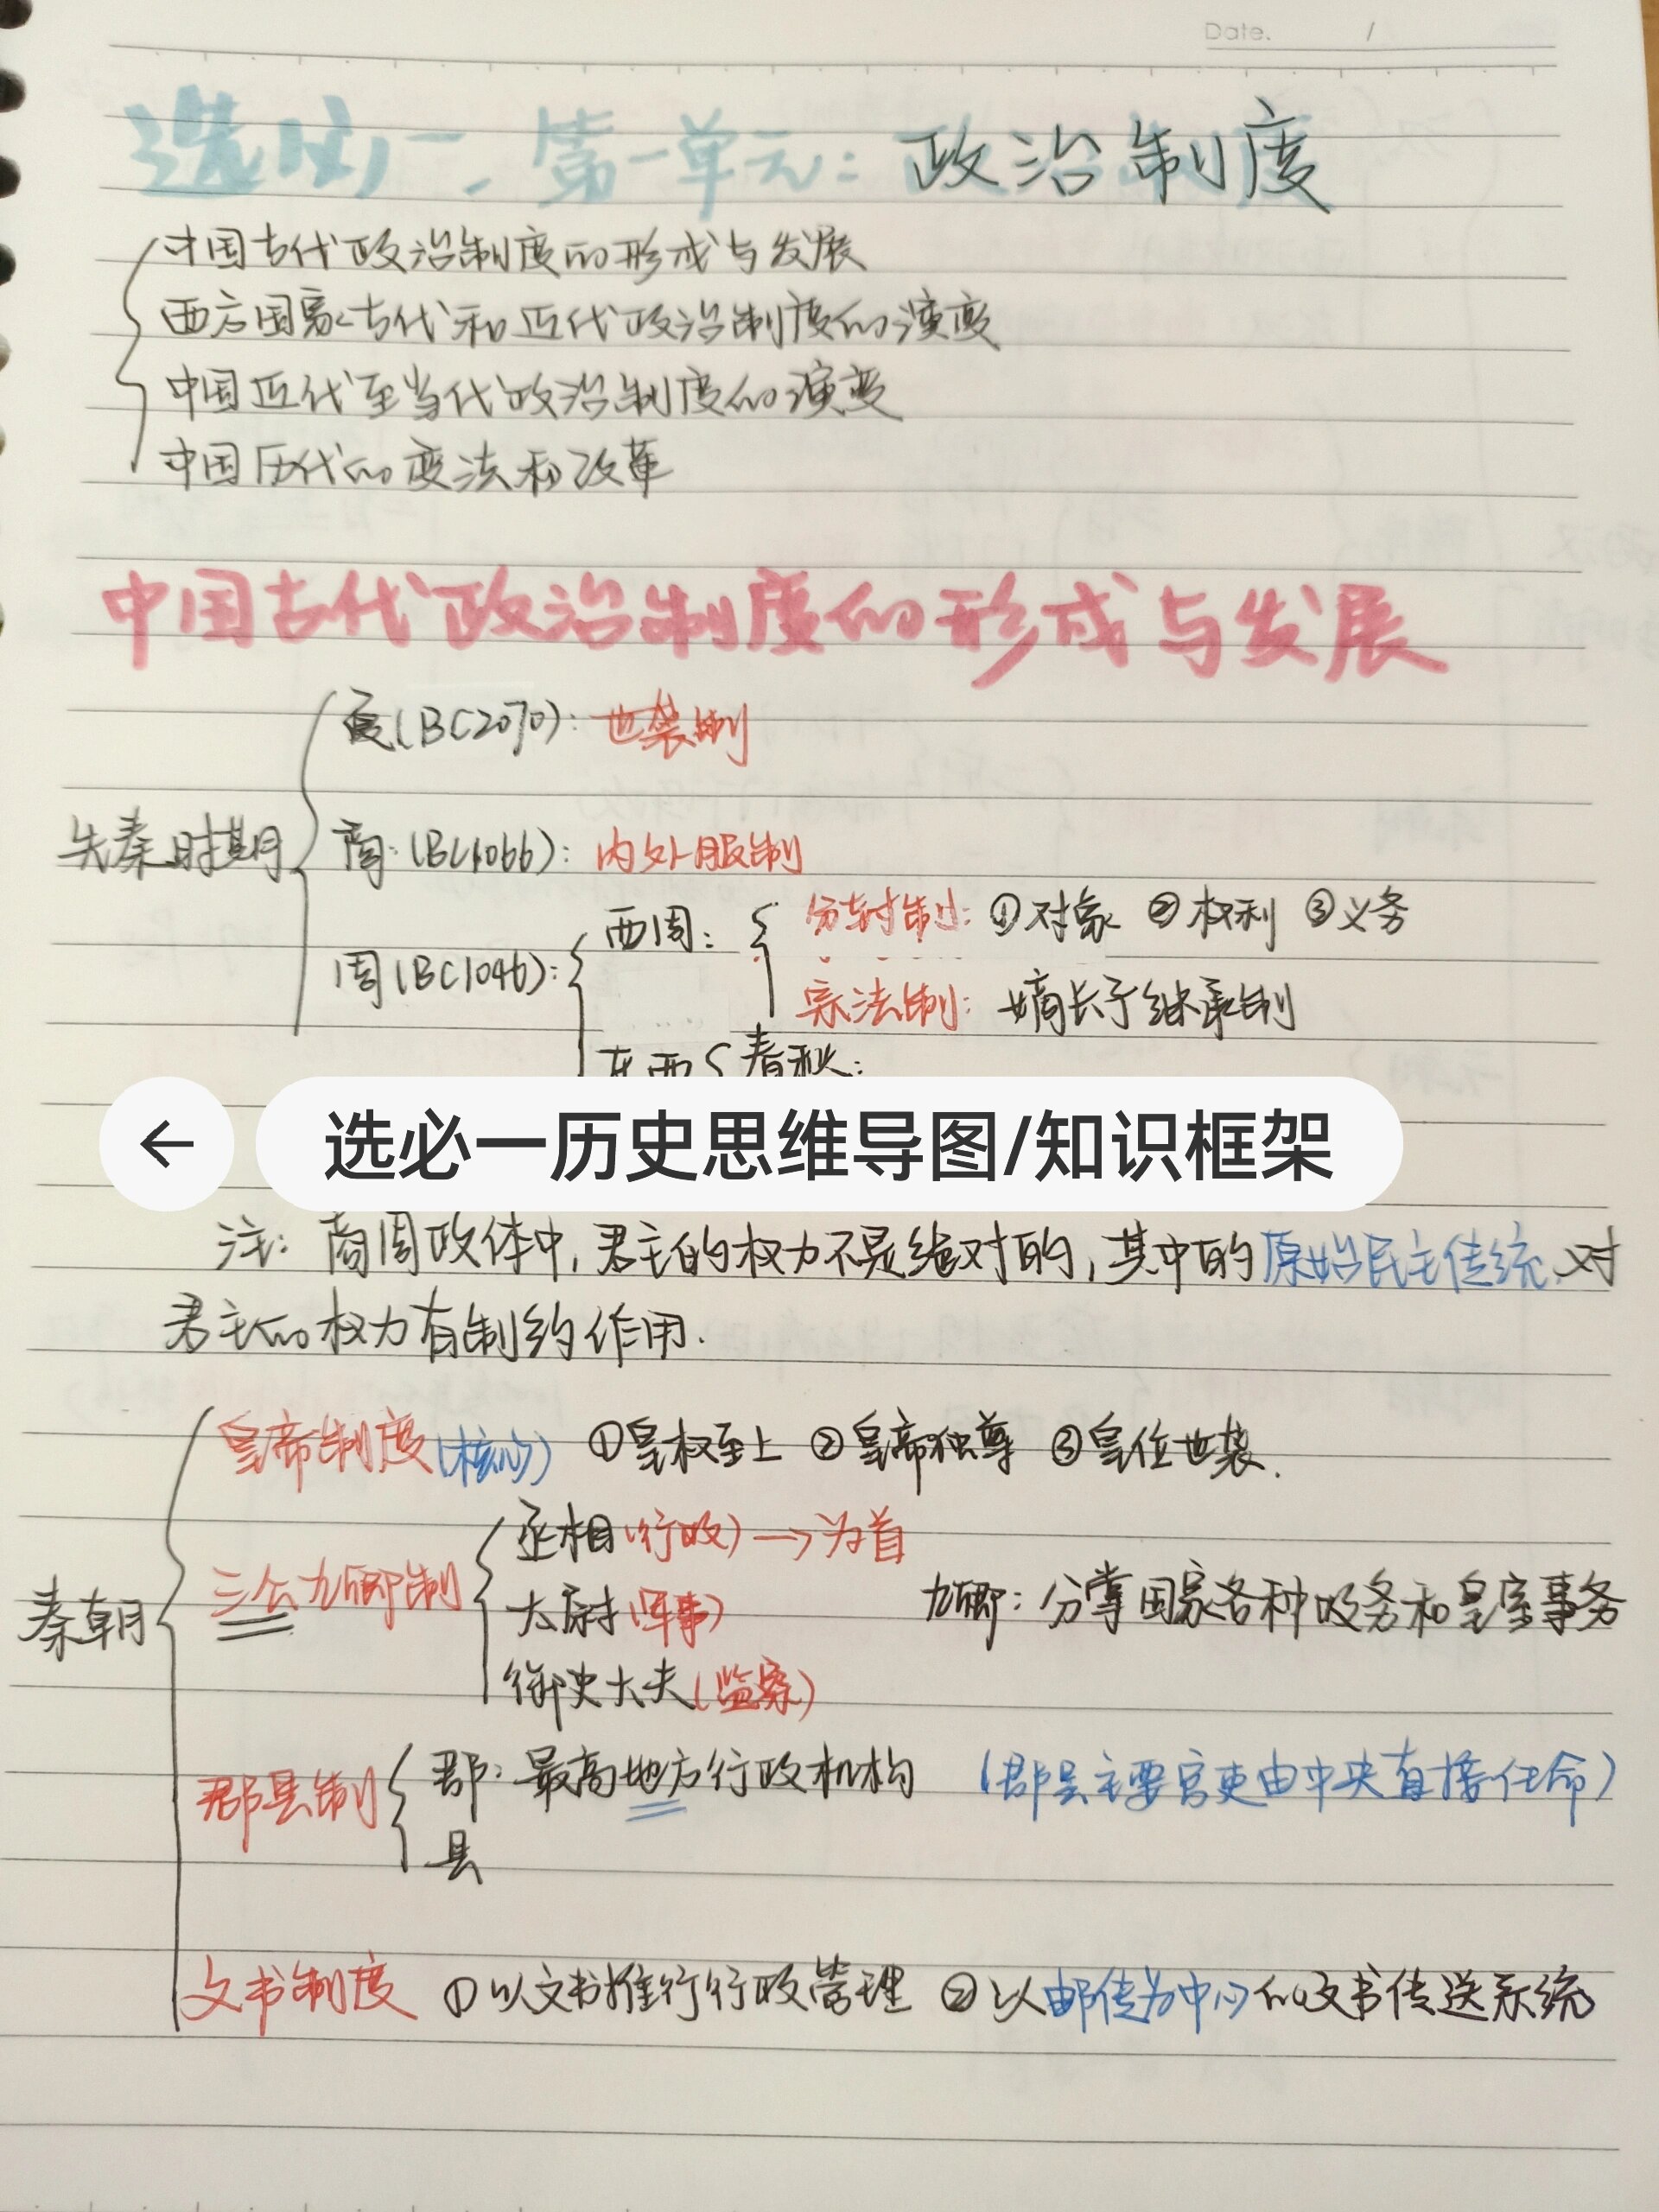 Date. /
选必一、第一单元：政治制度
中国古代政治制度的形成与发展
西方国家古代和近代政治制度的演变
中国近代至当代政治制度的演变
中国历代的变法和改革
中国古代政治制度的形成与发展
先秦时期
夏(BC2070)：世袭制
商：(BC1066)：内外服制
周(BC1046)：
西周：
分封制：①对象 ②权利 ③义务
宗法制：嫡长子继承制
东西 春秋：
← 选必一历史思维导图/知识框架
注：商周政体中，君主的权力不是绝对的，其中的原始民主传统对
君主的权力有制约作用.
秦朝
皇帝制度(核心) ①皇权至上 ②皇帝独尊 ③皇位世袭.
三公九卿制
丞相(行政)→为首
太尉(军事)
御史大夫(监察)
九卿：分掌国家各种政务和皇室事务
郡县制
郡：最高地方行政机构 (郡县主要官吏由中央直接任命)
县
文书制度 ①以文书推行行政管理 ②以邮传为中心的文书传送系统